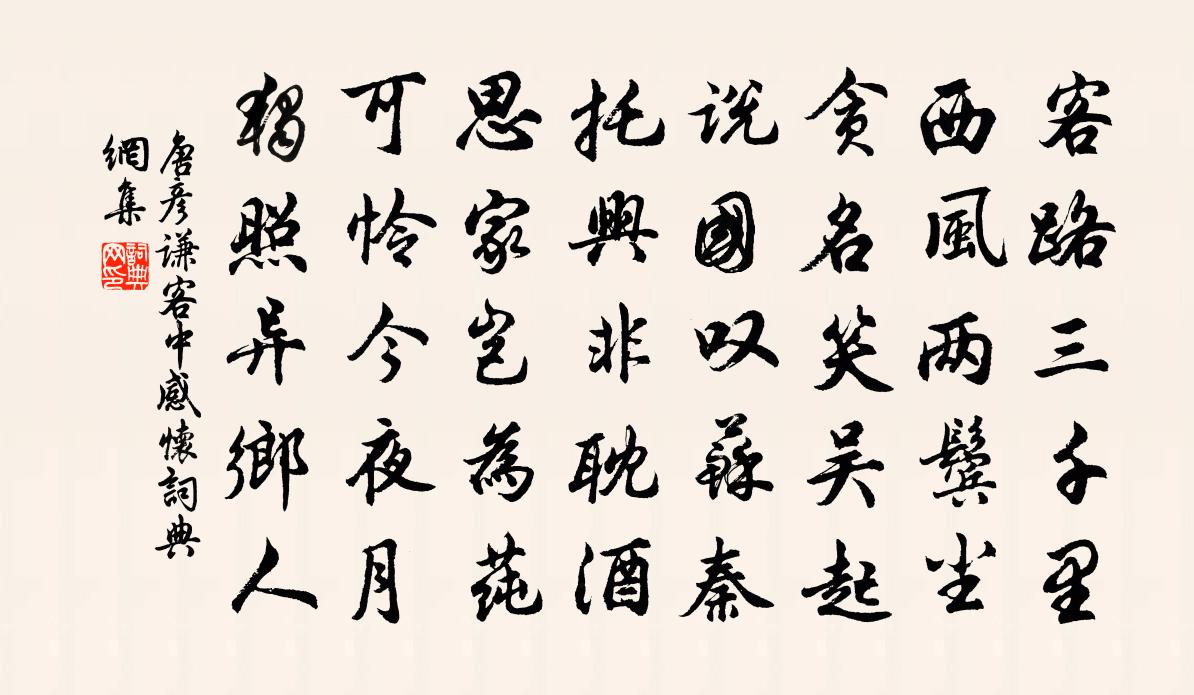 客路三千里
西風两鬢尘
贪名笑吴起
说國叹蘇秦
托興非耽酒
思家豈為莼
可怜今夜月
獨照异鄉人
唐彦謙客中感懷詞典
網集
詞典
网印